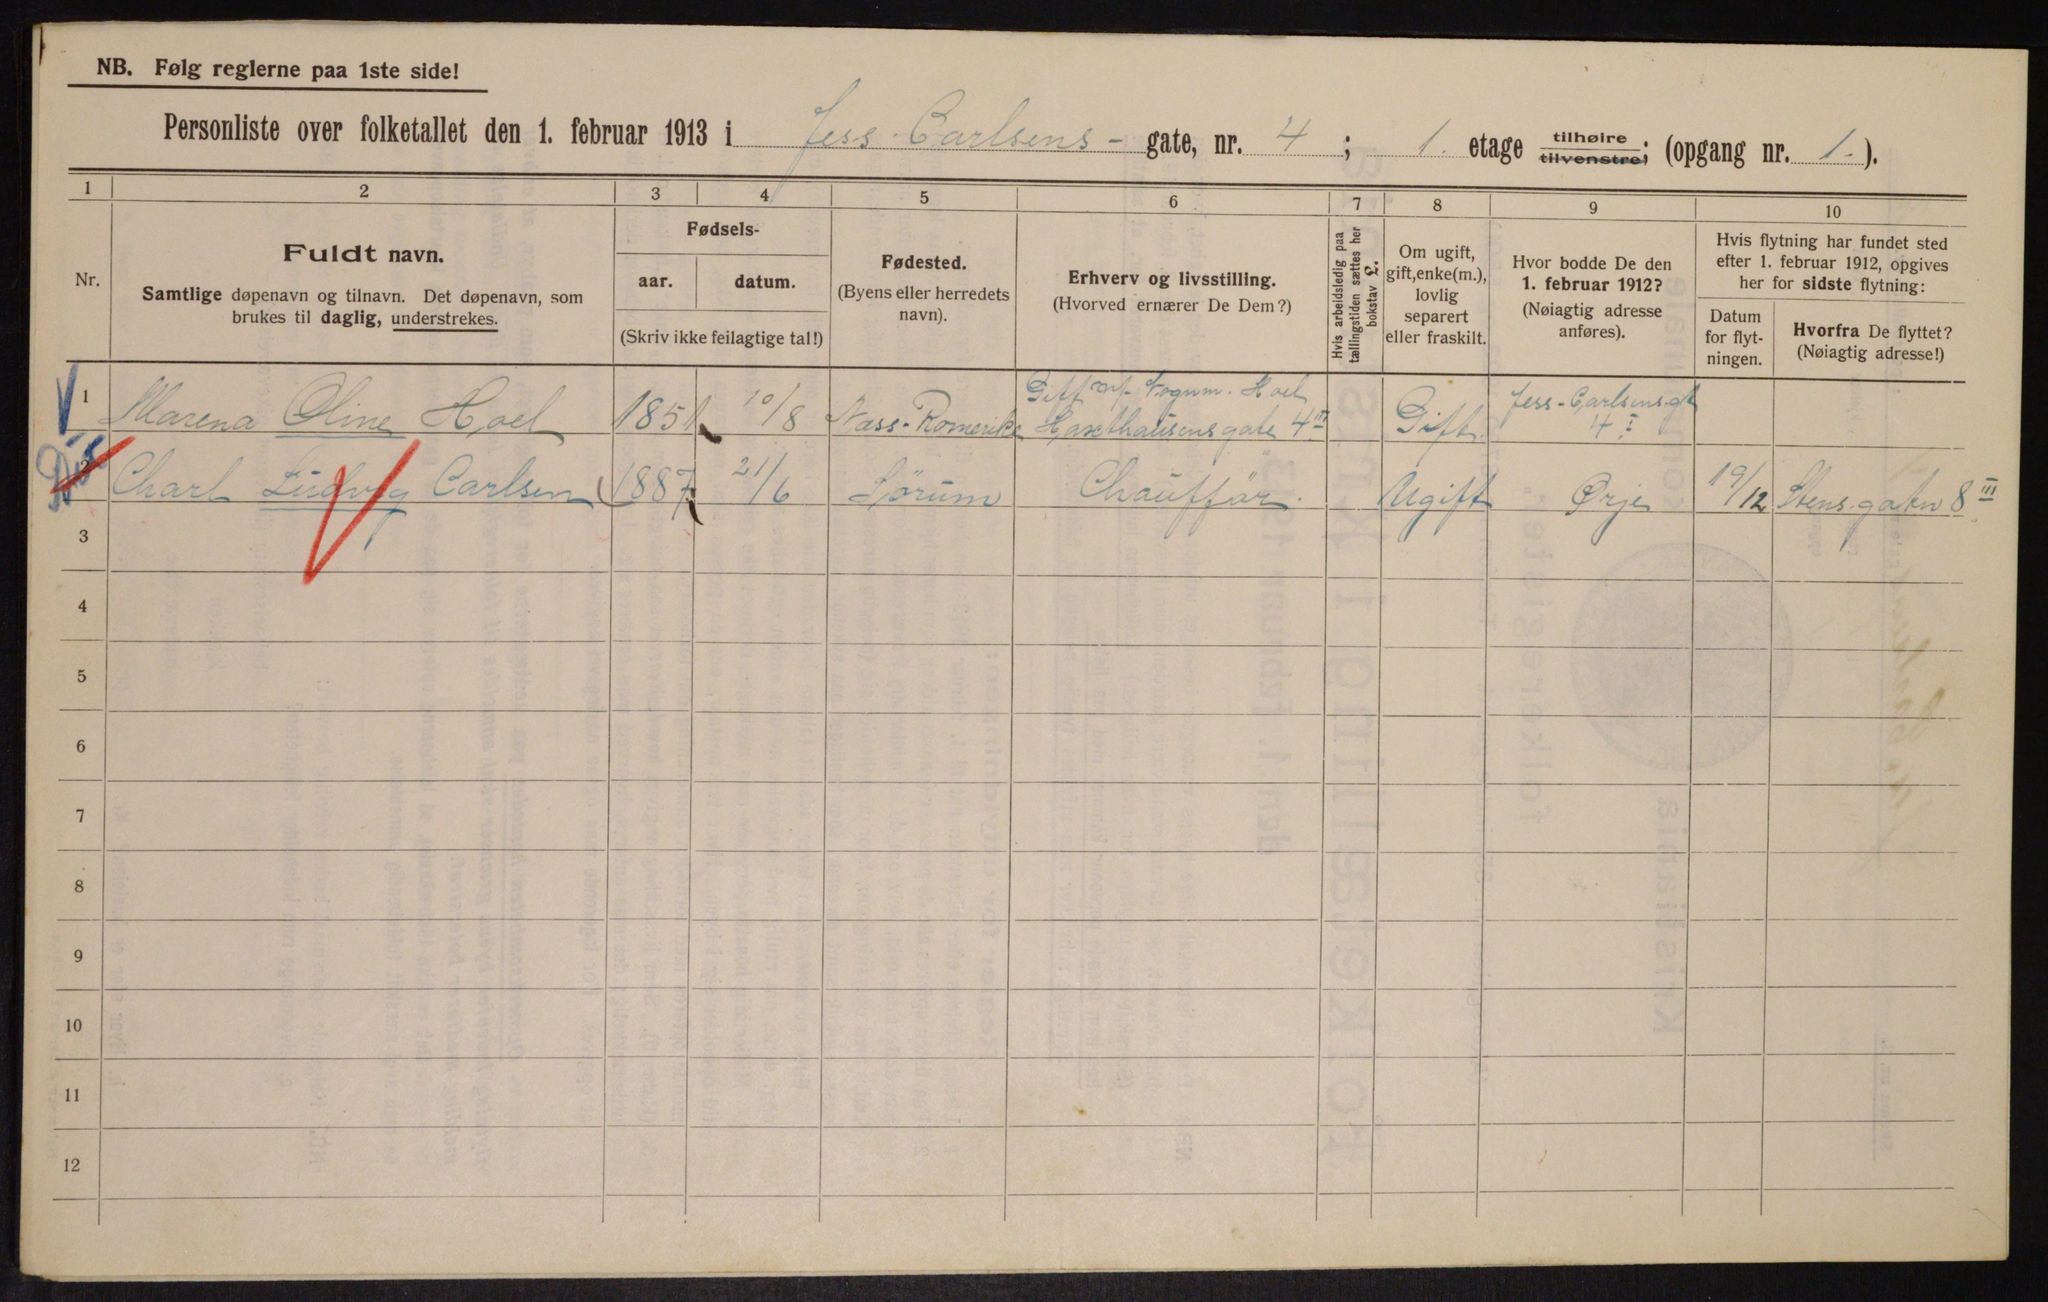 NB. Følg reglerne paa 1ste side!
Personliste over folketallet den 1. februar 1913 i Jess Carlsens - gate, nr. 4; 1. etage tilhøire tilvenstre; (opgang nr. 1.).
1 2 3 4 5 6 7 8 9 10
Nr.
Fuldt navn.
Samtlige døpenavn og tilnavn. Det døpenavn, som
brukes til daglig, understrekes.
Fødsels-
aar. datum.
(Skriv ikke feilagtige tal!)
Fødested.
(Byens eller herredets
navn).
Erhverv og livsstilling.
(Hvorved ernærer De Dem?)
Hvis arbeidsledig paa
tællingstiden sættes her
bokstav £.
Om ugift,
gift, enke(m.),
lovlig
separert
eller fraskilt.
Hvor bodde De den
1. februar 1912?
(Nøiagtig adresse
anføres).
Hvis flytning har fundet sted
efter 1. februar 1912, opgives
her for sidste flytning:
Datum
for flyt-
ningen.
Hvorfra De flyttet?
(Nøiagtig adresse!)
1 Marena Oline Hoel 1851 10/8 Næss-Romerike Gift Hoel Haxthausens gate 4 III Gift. Jess-Carlsens gt 4 I
2 Charl Ludvig Carlsen 1887 21/6 Sørum Chauffør. Ugift Ørje 19/12 Stens gaten 8 III
3
4
5
6
7
8
9
10
11
12